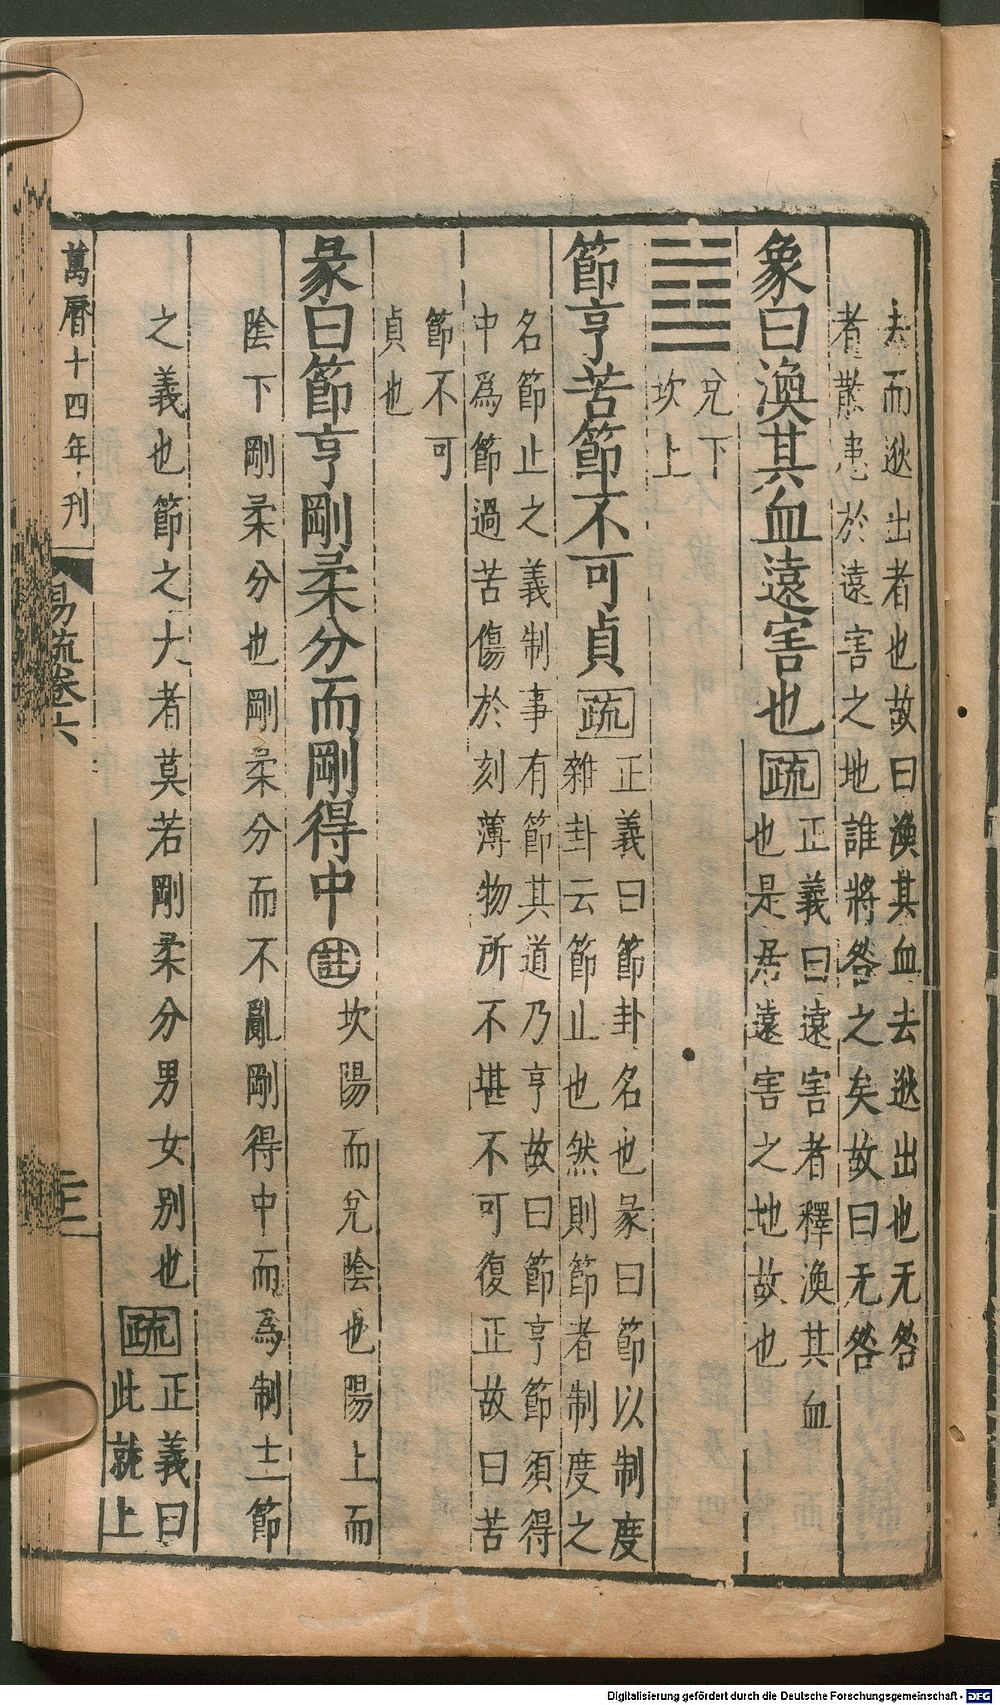 去而逖出者也故曰渙其血去逖出也无咎
者散患於遠害之地誰將咎之矣故曰无咎
象曰渙其血遠害也疏
正義曰遠害者釋渙其血
也是居遠害之地故也
兌下
坎上
節亨苦節不可貞疏
正義曰節卦名也彖曰節以制度
雜卦云節止也然則節者制度之
名節止之義制事有節其道乃亨故曰節亨節須得
中為節過苦傷於刻薄物所不堪不可復正故曰苦
節不可
貞也
彖曰節亨剛柔分而剛得中註坎陽而兌陰也陽上而
陰下剛柔分也剛柔分而不亂剛得中而為制主節
之義也節之大者莫若剛柔分男女別也疏
正義曰
此就上
萬曆十四年刊
易疏卷六
Digitalisierung gefördert durch die Deutsche Forschungsgemeinschaft - DFG